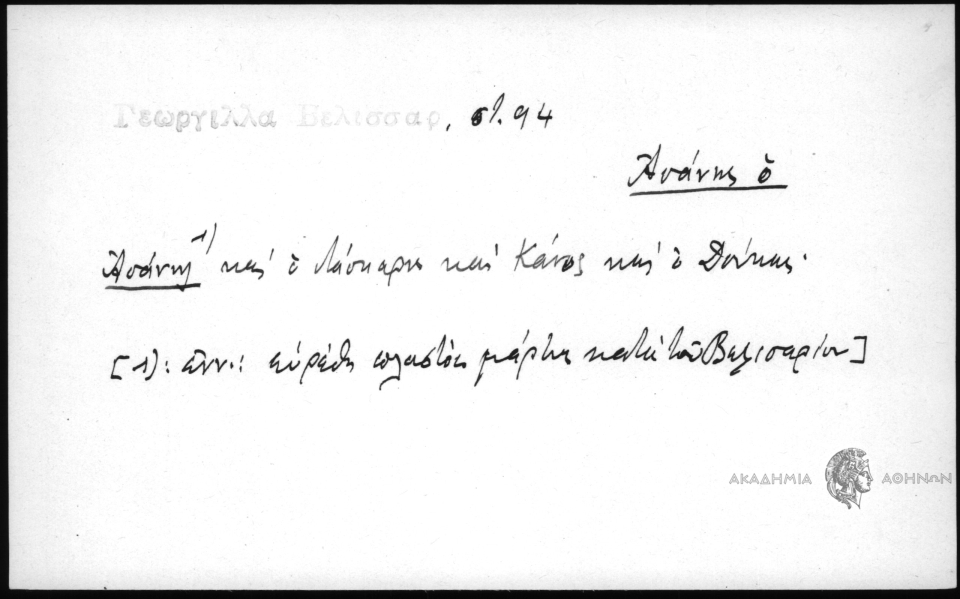 Γεωργιλλα Βελισσαρ, στ. 94
Ἀσάνης ὁ
Ἀσάνης 1) καὶ ὁ Λάσκαρις καὶ Κάνος καὶ ὁ Δούκας.
[1): ἐνν.: εὑρέθη πλαστὸς μάρτυς κατὰ τοῦ Βελισαρίου]
ΑΚΑΔΗΜΙΑ ΑΘΗΝΩΝ